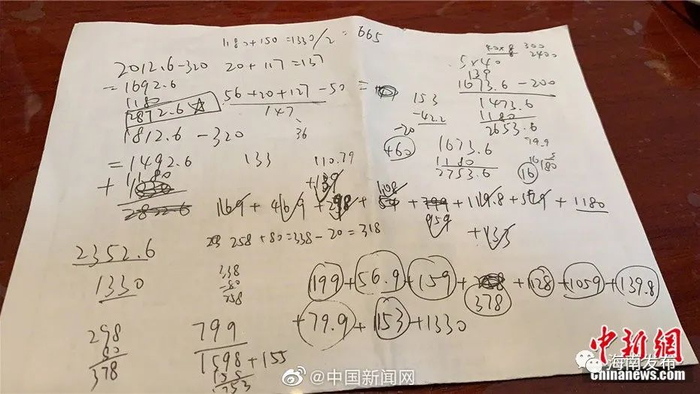 1180+150=1330/2=665
2012.6-320 20+117=137
=1692.6
1180
2872.6
56+20+127-50=
147
1812.6-320 36
=1492.6 133 110.79
+1180
40×8 300
2400
5×40
139
1673.6-200
1473.6
1180
2653.6
153
-42.2
-20
+60
1673.6
1180
2753.6
79.9
16
180
169+469+298+ + +1119.8+529+1180
959
+133
2352.6
1330
258+80=338-20=318
338
-80
258
199+56.9+159+ +128+1059+139.8
378
+79.9+153+1330
298
80
378
799
1598+155
155
1753
@中国新闻网
海南发布
中新网
Chinanews.com